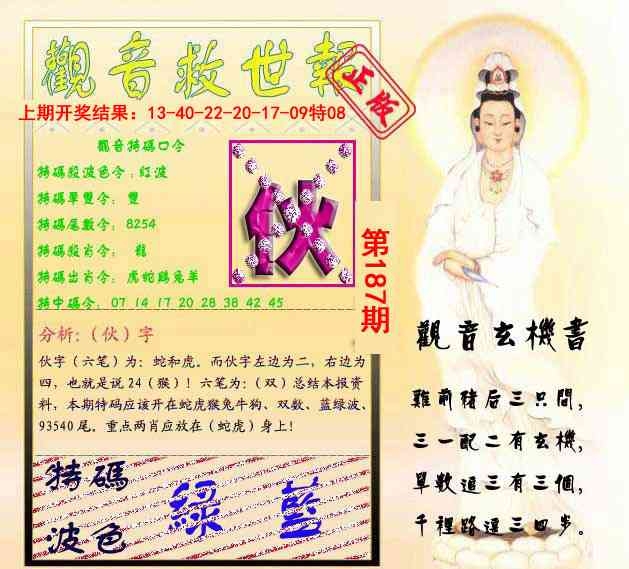 觀音救世報
正版
上期开奖结果：13-40-22-20-17-09特08
觀音特碼口令
特碼殺波色令：紅波
特碼單雙令：雙
特碼尾數令：8254
特碼殺肖令：龍
特碼出肖令：虎蛇鷄兔羊
特中碼令：07 14 17 20 28 38 42 45
伙
第187期
分析：（伙）字
伙字（六笔）为：蛇和虎。而伙字左边为二，右边为
四，也就是说24（猴）！六笔为：（双）总结本报资
料，本期特码应该开在蛇虎猴兔牛狗、双数、蓝绿波、
93540尾。重点两肖应放在（蛇虎）身上！
特碼
波色
綠 藍
觀音玄機書
雞前豬后三只間，
三一配二有玄機，
單數逼三有三個，
千裡路遠三四步。